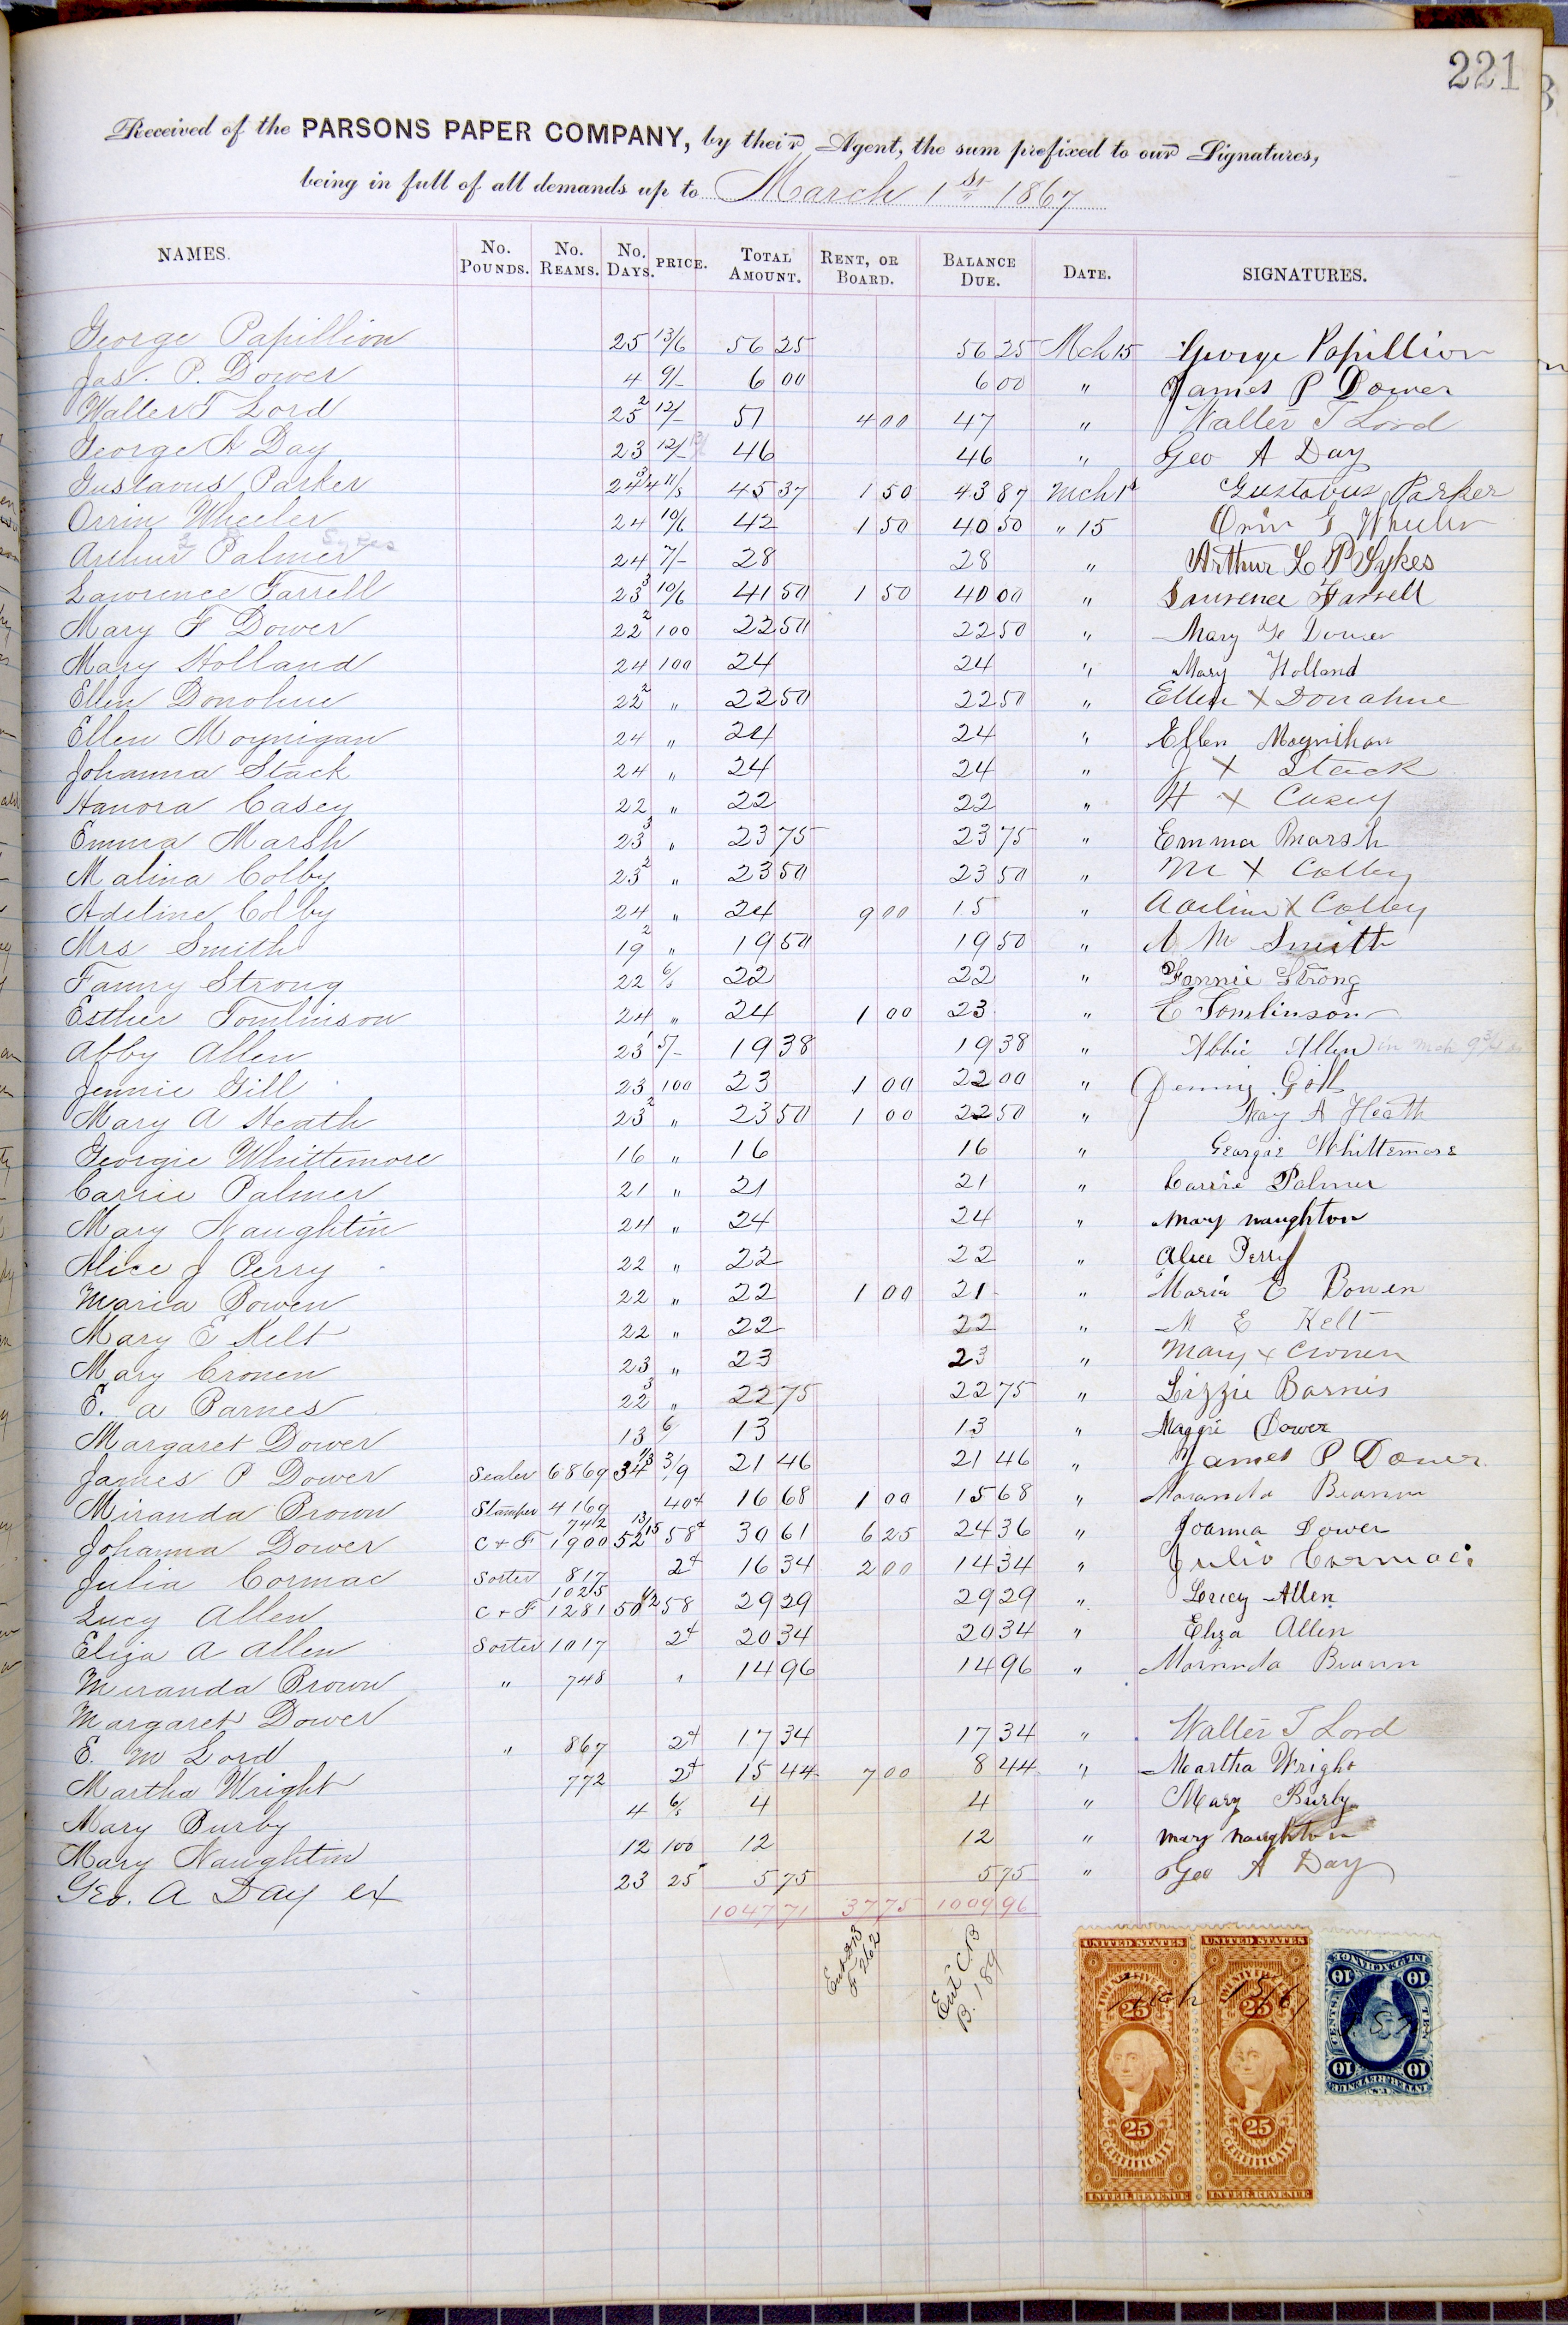 221
Received of the PARSONS PAPER COMPANY, by their Agent, the sum prefixed to our Signatures,
being in full of all demands up to March 1st 1867
NAMES. No. POUNDS. No. REAMS. No. DAYS. PRICE. TOTAL AMOUNT. RENT, OR BOARD. BALANCE DUE. DATE. SIGNATURES.
George Papillion 25 13/6 56 25 56 25 Mch 15 George Papillion
Jas. P. Dower 4 9/- 6 00 6 00 " James P Dower
Walter T Lord 25 2 12/- 51 4 00 47 " Walter T Lord
George A Day 23 12/- 46 46 " Geo A Day
Gustavus Parker 24 3/4 11/3 45 37 1 50 43 87 Mch 1 Gustavus Parker
Orrin Wheeler 24 10/6 42 1 50 40 50 " 15 Orrin G Wheeler
Arthur Palmer Sykes 24 7/- 28 28 " Arthur L P Sykes
Lawrence Farrell 23 3 10/6 41 50 1 50 40 00 " Lawrence Farrell
Mary F Dower 22 2 100 22 50 22 50 " Mary F Dower
Mary Holland 24 100 24 24 " Mary Holland
Ellen Donohue 22 2 " 22 50 22 50 " Ellen X Donahue
Ellen Moynigan 24 " 24 24 " Ellen Moynihan
Johanna Stack 24 " 24 24 " J X Stack
Hanora Casey 22 " 22 22 " H X Casey
Emma Marsh 23 3 " 23 75 23 75 " Emma Marsh
Malina Colby 23 2 " 23 50 23 50 " M X Colby
Adeline Colby 24 " 24 9 00 15 " Adeline X Colby
Mrs Smith 19 2 " 19 50 19 50 " M Smith
Fanny Strong 22 6/s 22 22 " Fannie Strong
Esther Tomlinson 24 " 24 1 00 23 " E Tomlinson
Abby Allen 23 1 5/- 19 38 19 38 " Abbie Allen
Jennie Gill 23 100 23 1 00 22 00 " Jennie Gill
Mary A Heath 23 2 " 23 50 1 00 22 50 " Mary A Heath
Georgie Whittemore 16 " 16 16 " Georgie Whittemore
Carrie Palmer 21 " 21 21 " Carrie Palmer
Mary Naughtin 24 " 24 24 " Mary Naughton
Alice J Perry 22 " 22 22 " Alice Perry
Maria Bowen 22 " 22 1 00 21 " Maria E Bowen
Mary E Kelt 22 " 22 22 " M E Kelt
Mary Cronen 23 " 23 23 " Mary X Cronen
E. A Barnes 22 3 " 22 75 22 75 " Lizzie Barnes
Margaret Dower 13 6/ 13 13 " Maggie Dower
James P Dower Sealer 6869 34 1/3 3/9 21 46 21 46 " James P Dower
Miranda Brown Stamper 4169 40¢ 16 68 1 00 15 68 " Maranda Brown
Johanna Dower C + F 742 1900 52 13/15 58¢ 30 61 6 25 24 36 " Joanna Dower
Julia Cormac Sorter 817 2¢ 16 34 2 00 14 34 " Julia Cormac
Lucy Allen C + F 1025 1281 50 1/2 58 29 29 29 29 " Lucy Allen
Eliza A Allen Sorter 1017 2¢ 20 34 20 34 " Eliza Allen
Miranda Brown " 748 " 14 96 14 96 " Maranda Brown
Margaret Dower
E. M Lord " 867 2¢ 17 34 17 34 " Walter T Lord
Martha Wright 772 2¢ 15 44 7 00 8 44 " Martha Wright
Mary Burby 4 6/s 4 4 " Mary Burby
Mary Naughtin 12 100 12 12 " Mary Naughton
Geo. A Day ex 23 25 5 75 5 75 " Geo A Day
1047 71 37 75 1009 96
Ent DB F 262
Ent C.B B. 189
UNITED STATES UNITED STATES
TWENTY FIVE 25 TWENTY FIVE 25
25 25
CERTIFICATE CERTIFICATE
INTER. REVENUE INTER. REVENUE
10 10
TEN CENTS
INTER. REVENUE
U.S.